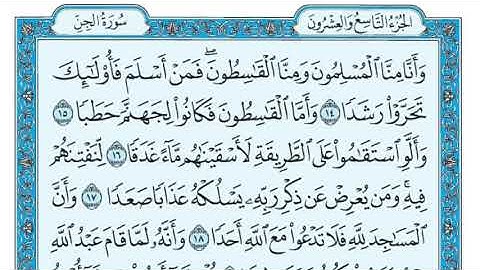 الجُزءُ التَّاسِعُ وَالعِشْرُونَ
سُورَةُ الجِنّ
وَأَنَّا مِنَّا ٱلْمُسْلِمُونَ وَمِنَّا ٱلْقَٰسِطُونَۖ فَمَنْ أَسْلَمَ فَأُو۟لَٰٓئِكَ
تَحَرَّوْا۟ رَشَدًا ١٤ وَأَمَّا ٱلْقَٰسِطُونَ فَكَانُوا۟ لِجَهَنَّمَ حَطَبًا ١٥
وَأَلَّوِ ٱسْتَقَٰمُوا۟ عَلَى ٱلطَّرِيقَةِ لَأَسْقَيْنَٰهُم مَّآءً غَدَقًا ١٦ لِّنَفْتِنَهُمْ
فِيهِۚ وَمَن يُعْرِضْ عَن ذِكْرِ رَبِّهِۦ يَسْلُكْهُ عَذَابًا صَعَدًا ١٧ وَأَنَّ
ٱلْمَسَٰجِدَ لِلَّهِ فَلَا تَدْعُوا۟ مَعَ ٱللَّهِ أَحَدًا ١٨ وَأَنَّهُۥ لَمَّا قَامَ عَبْدُ ٱللَّهِ